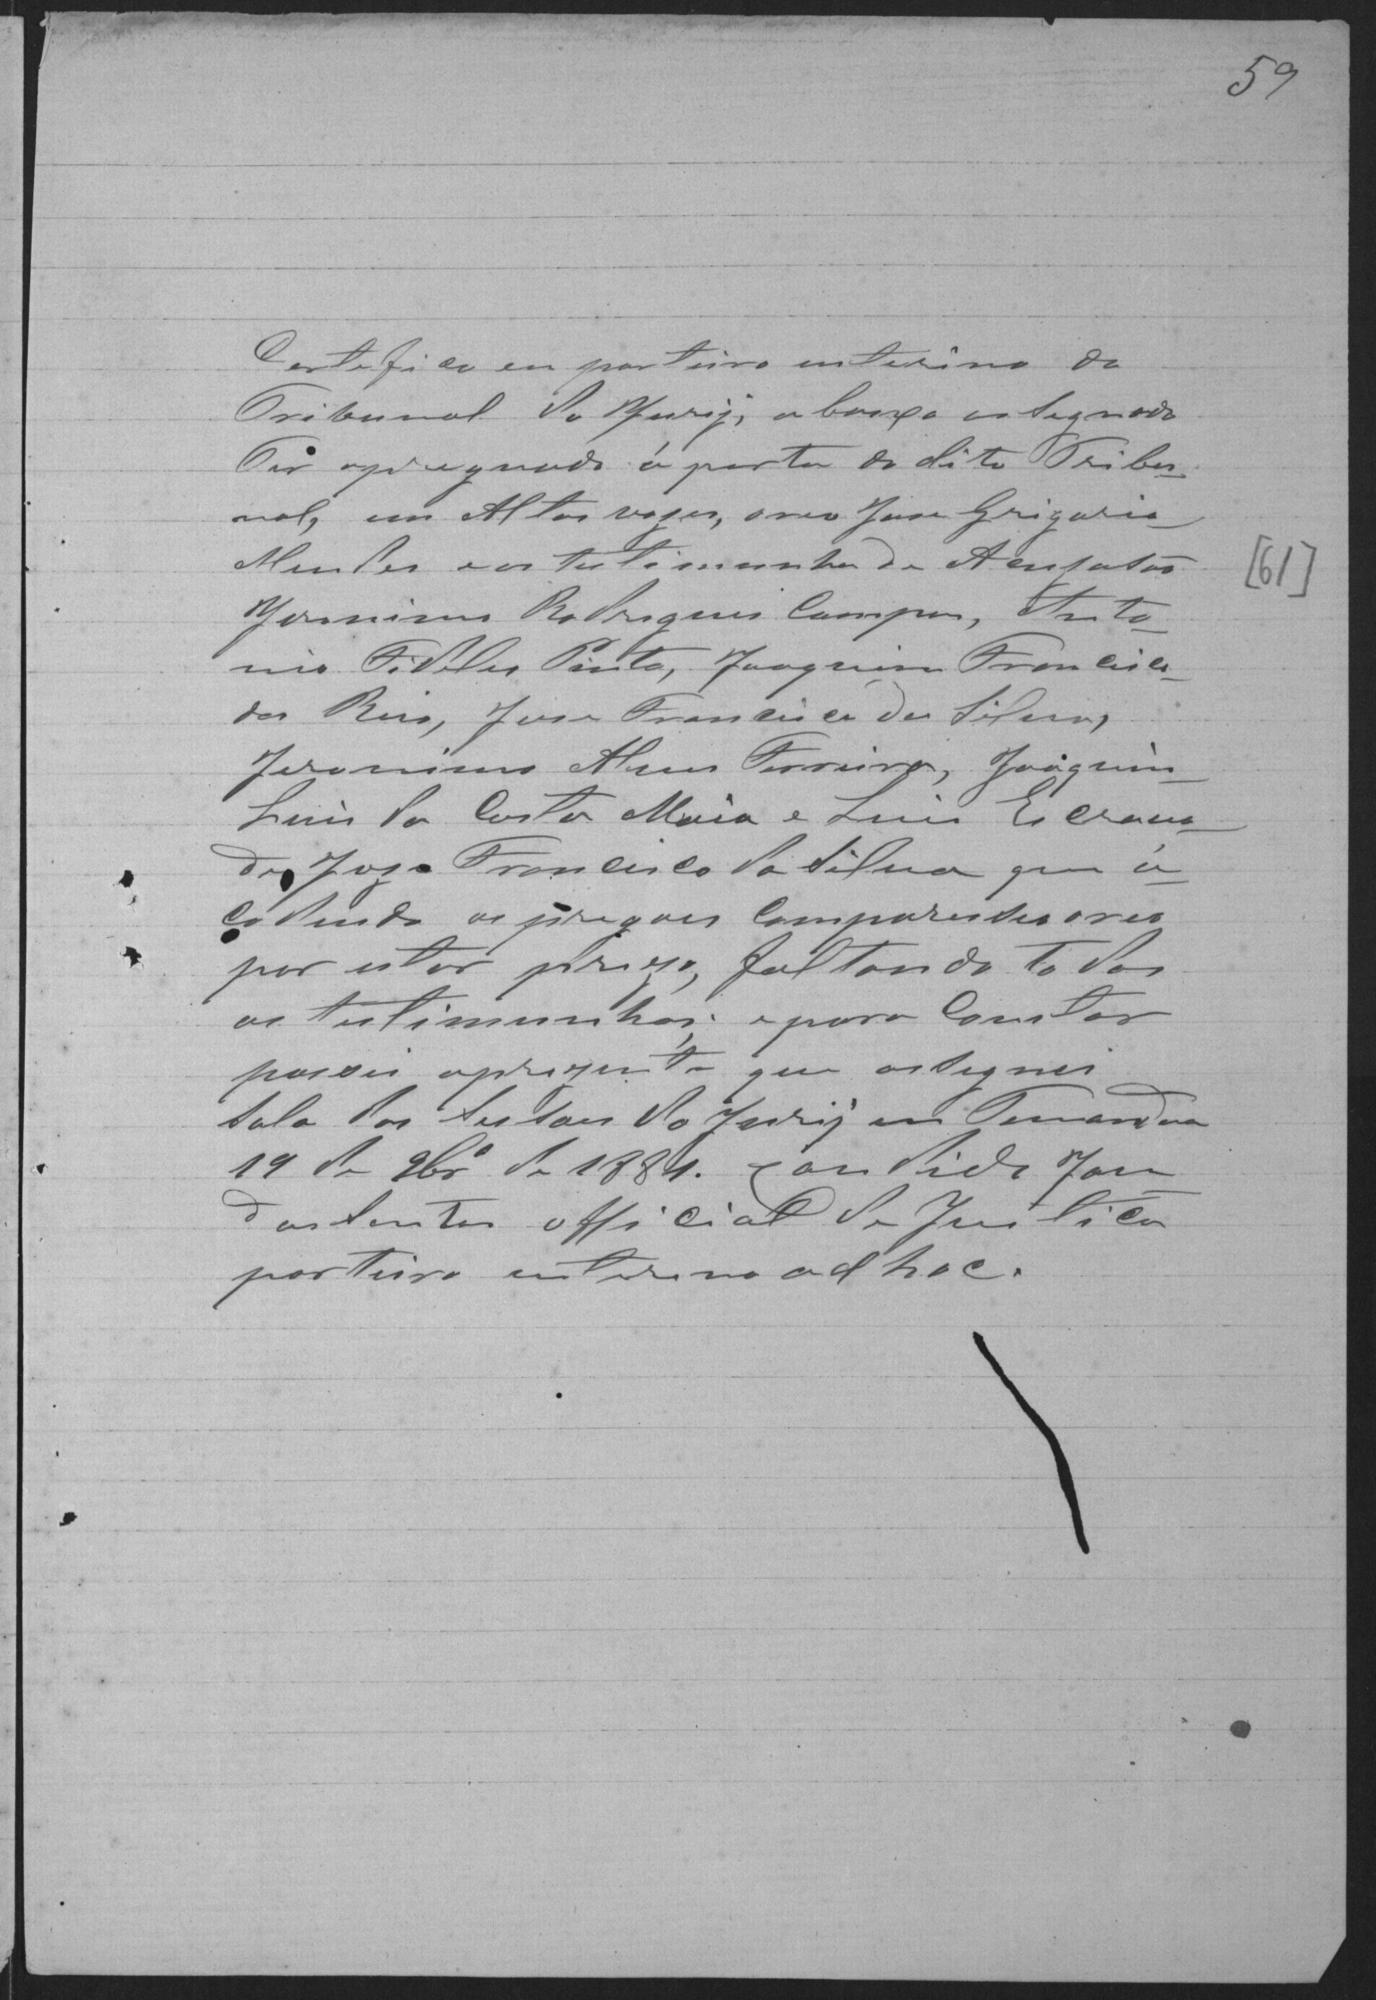 59
Certefico eu porteiro enterino do
Tribunal do Jurÿ, abaixo assegnado
Ter apregoado á porta do dito Tribu-
nal, em Altas vozes, o reo Jose Grigorio
Mendes e as testimunha de Acusasão
Jeronimo Rodrigues Campos, Anto-
nio Fideles Pinto, Joaquim Francisco
dos Reis, Jose Francisco da Silva,
Jeronimo Alves Ferreira, Joaquim
Luis da Costa Maia e Luis Escravo
de Joze Francisco da Silva que á-
codindo os pregoes Compareseo o reo
por estar prezo, faltando todas
as testimunhas; e para Constar
passei a prezente que assegnei
Sala das Sessoes do Jurÿ em
19 de 9br.º de 1881. Candido Jose
dos Santos official de Justica
porteiro enterino ad hoc.
[61]